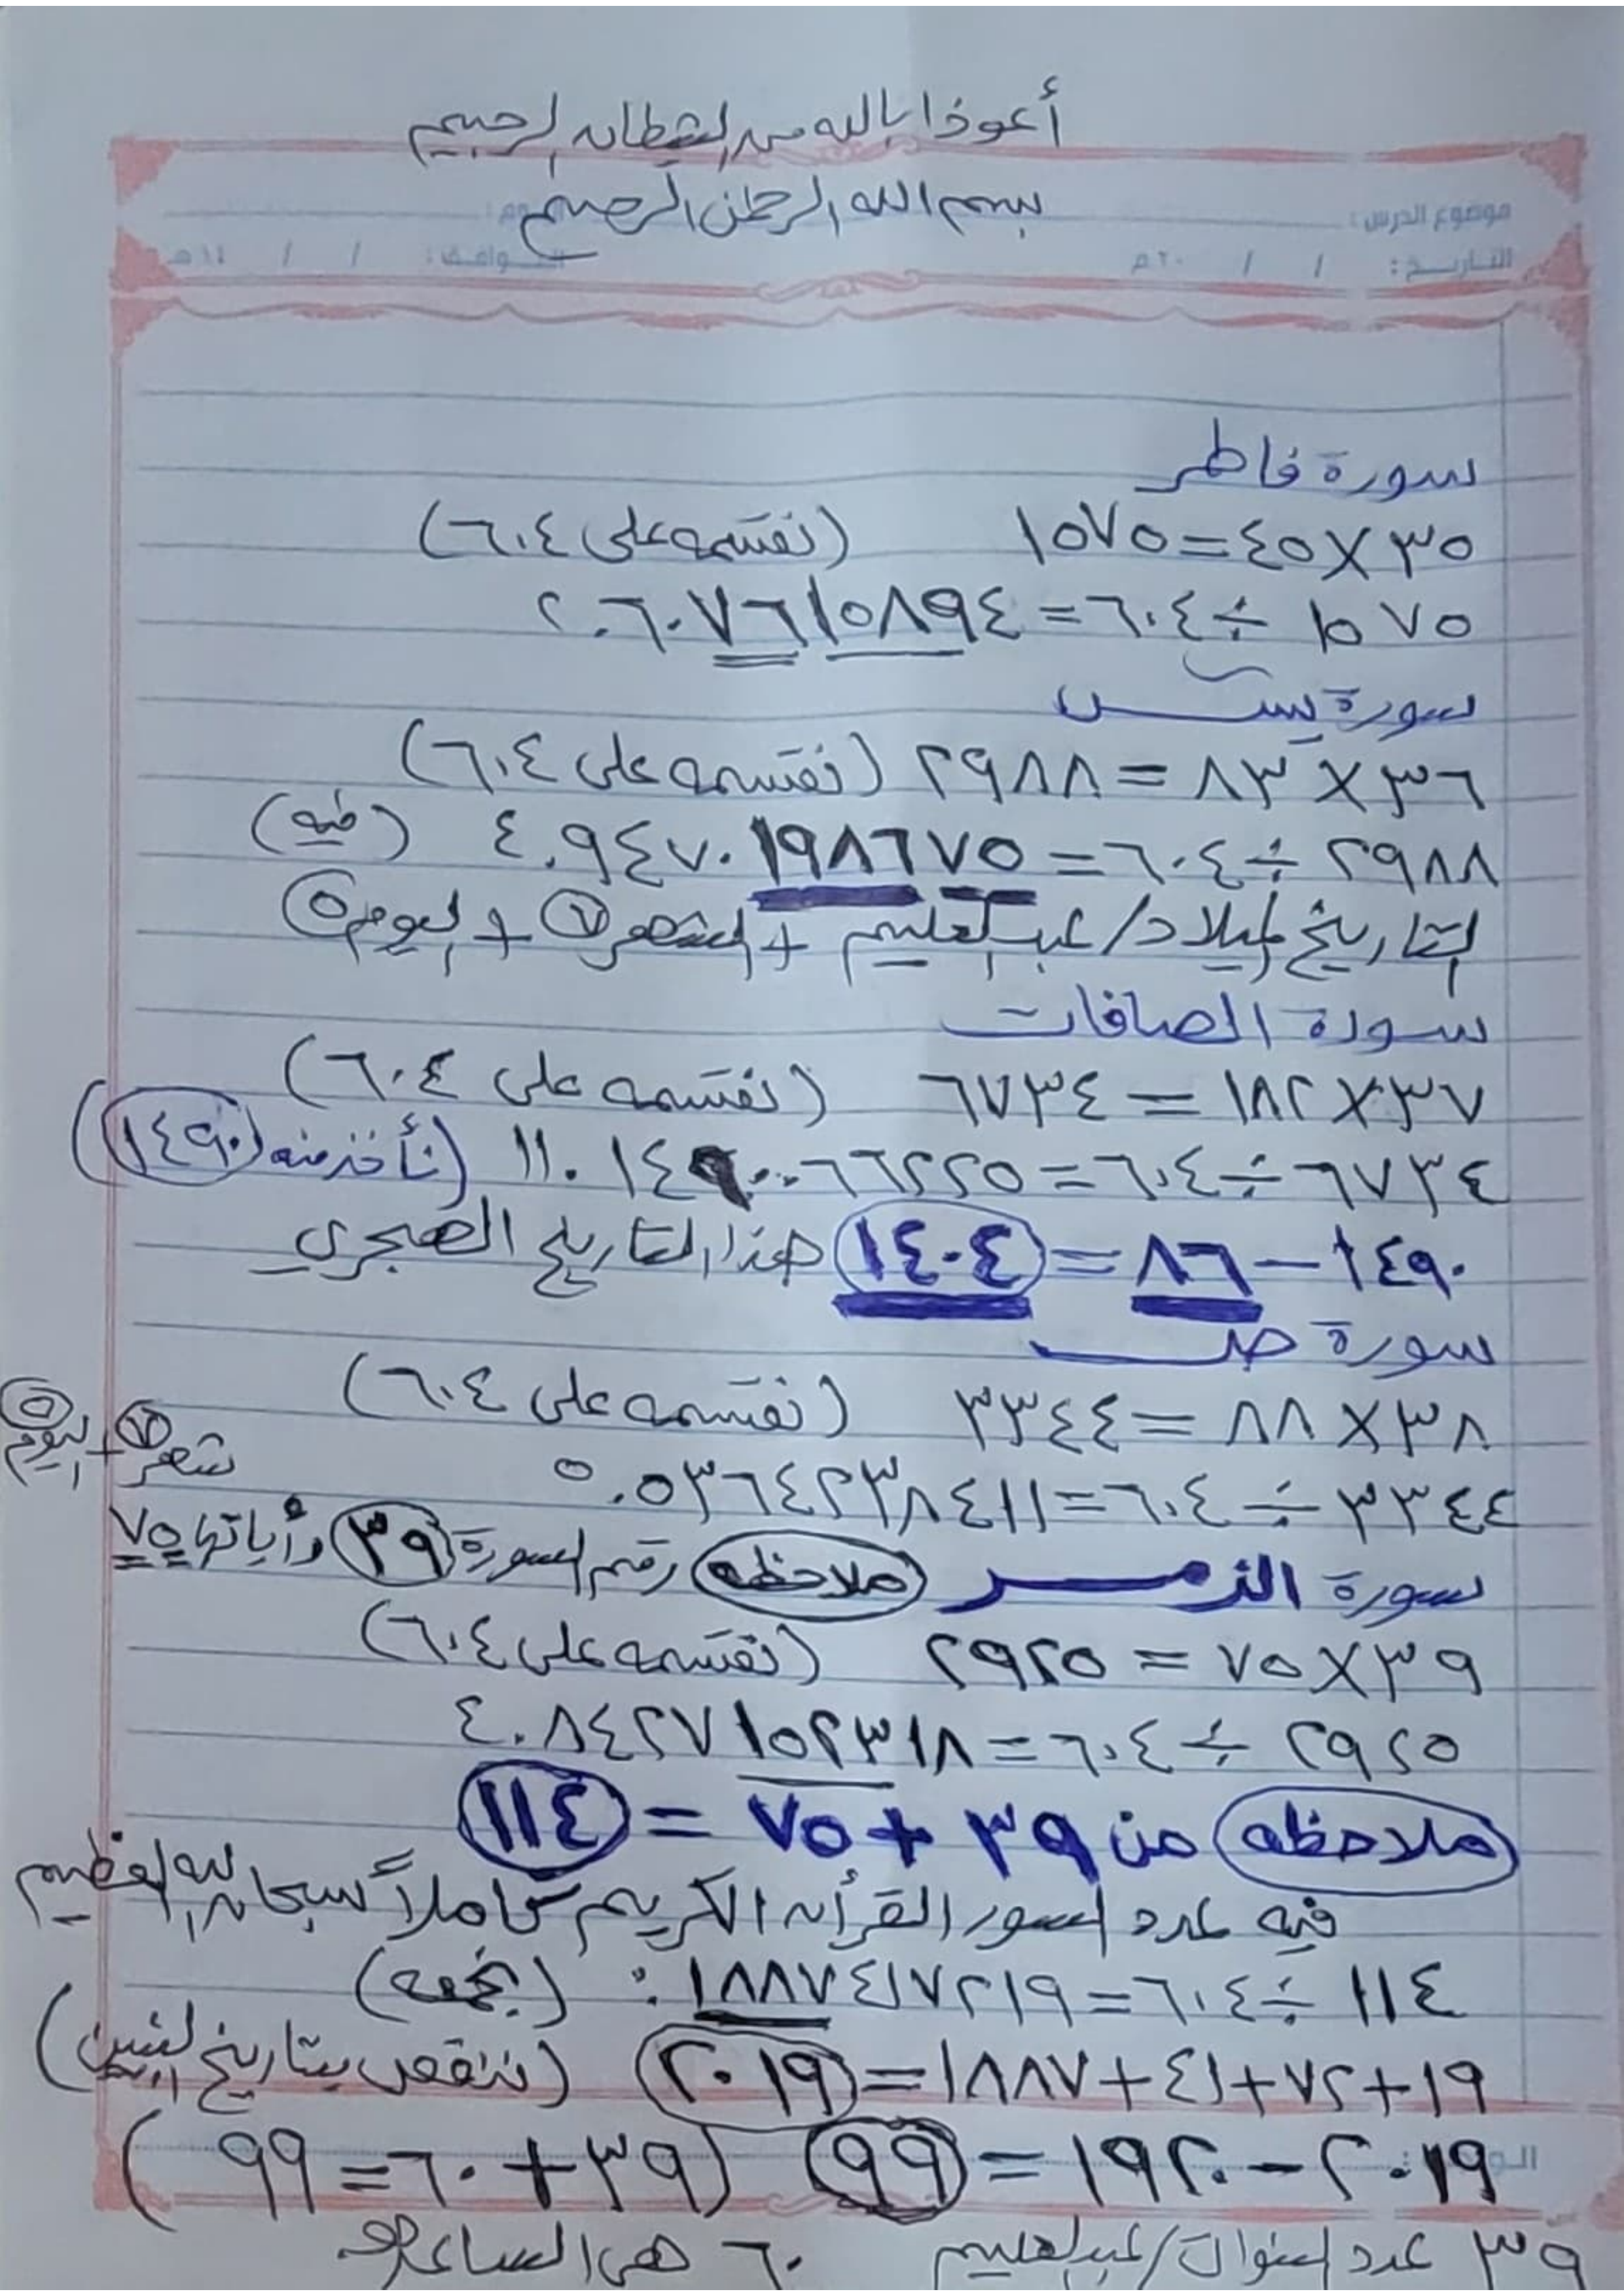 أعوذ بالله من الشيطان الرجيم
بسم الله الرحمن الرحيم
موضوع الدرس :
التاريخ : / / ٢٠م الموافق : / / ١٤هـ
سورة فاطر
٣٥ × ٤٥ = ١٥٧٥ (نقسمه على ٦٠٤)
١٥٧٥ ÷ ٦٠٤ = ٢.٦٠٧٦١٥٨٩٤
سورة يس
٣٦ × ٨٣ = ٢٩٨٨ (نقسمه على ٦٠٤)
٢٩٨٨ ÷ ٦٠٤ = ٤.٩٤٧٠١٩٨٦٧٥ (فيه)
التاريخ لميلاد/ عبدالعليم + الشهر ٧ + اليوم ٥
سورة الصافات
٣٧ × ١٨٢ = ٦٧٣٤ (نقسمه على ٦٠٤)
٦٧٣٤ ÷ ٦٠٤ = ١١.١٤٩٠٠٦٦٢٢٥ (نأخذ منه ١٤٩٠)
١٤٩٠ – ٨٦ = ١٤٠٤ هذا التاريخ الهجري
سورة ص
٣٨ × ٨٨ = ٣٣٤٤ (نقسمه على ٦٠٤)
شهر ٧ + اليوم ٥
٣٣٤٤ ÷ ٦٠٤ = ٥.٥٣٦٤٢٣٨٤١١
سورة الزمر ملاحظه رقم السورة ٣٩ وأياتها ٧٥
٣٩ × ٧٥ = ٢٩٢٥ (نقسمه على ٦٠٤)
٢٩٢٥ ÷ ٦٠٤ = ٤.٨٤٢٧١٥٢٣١٨
ملاحظه من ٣٩ + ٧٥ = ١١٤
فيه عدد السور القرأن الكريم كاملاً سبحان الله العظيم
١١٤ ÷ ٦٠٤ = ٠.١٨٨٧٤١٧٢١٩ (نجمعه)
١٩ + ٧٢ + ٤١ + ١٨٨٧ = ٢٠١٩ (ننقص بتاريخ)
٢٠١٩ – ١٩٢٠ = ٩٩ (٣٩ + ٦٠ = ٩٩)
٣٩ عدد السنوات/ عبدالعليم ٦٠ هي الساعة